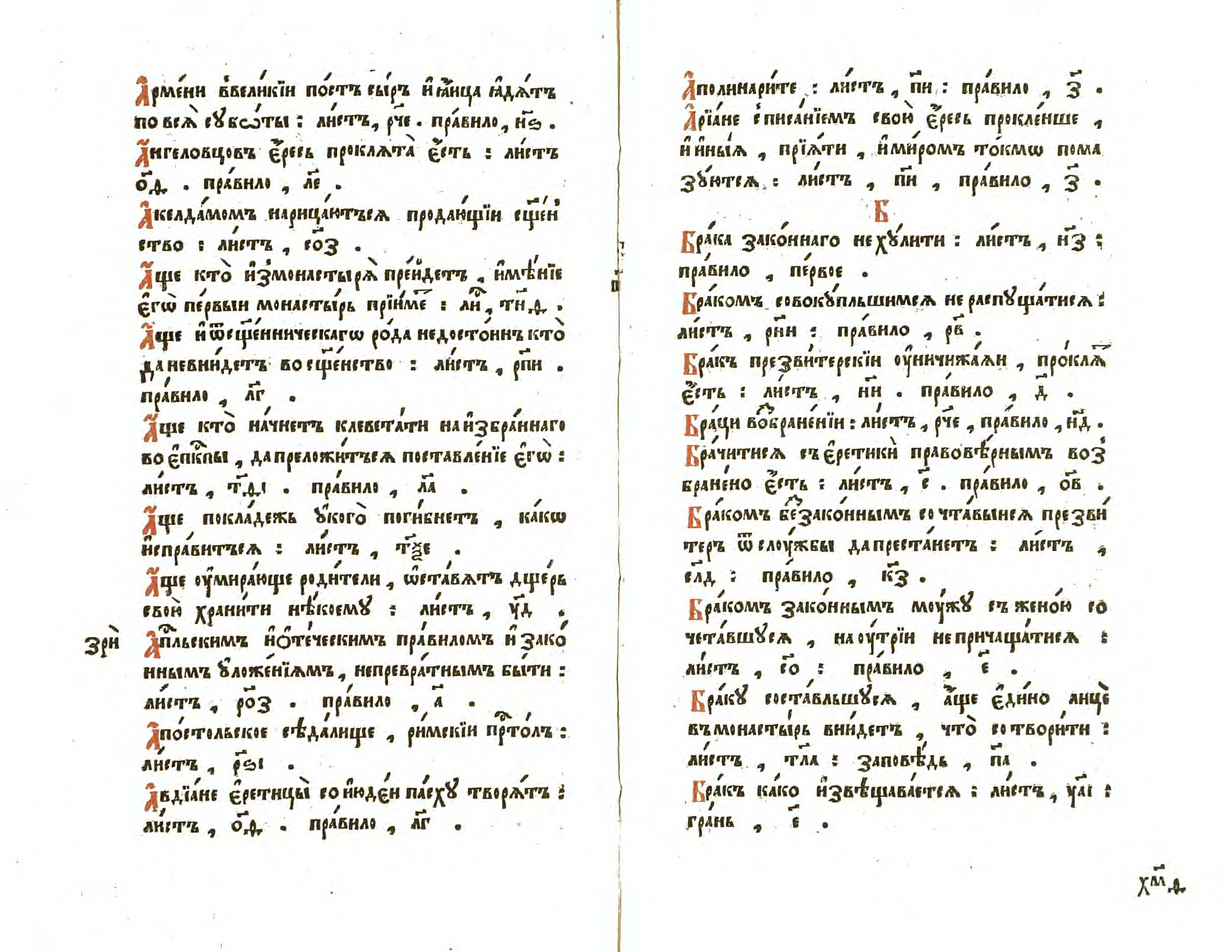 А҆рме́ни ввели́кїи по́стъ сы́ръ и҆ꙗ҆ица ꙗ҆дѧ́тъ
повсѧ̀ сꙋбѡ́ты : ли́стъ, рч҃е . пра́вило , н҃ѕ .
А҆́нгеловцовъ є҆́ресь проклѧта̀ є҆́сть : ли́стъ
о҃д . пра́вило , л҃е .
А҆келда́момъ нарица́ютьсѧ продаю́щїи сщ҃е́н
ство : ли́стъ , со҃з .
А҆́ще кто̀ и҆змонастырѧ̀ пре́йдетъ , и҆мѣ́нїе
є҆гѡ̀ пе́рвыи монасты́рь прїи́ме : ли́ , тн҃д .
А҆́ще и҆ѿсщ҃е́нническагѡ ро́да недосто́инъ кто̀
да невни́детъ во сщ҃е́нство : ли́стъ , рп҃и .
пра́вило , л҃г .
А҆́ще кто̀ на́чнетъ клевета́ти наи҆збра́ннаго
во є҆пк҃пы , да преложи́тьсѧ поставле́нїе є҆гѡ̀ :
ли́стъ , т҃дı . пра́вило , л҃а .
А҆́ще покла́дежь ᲂу҆кого̀ поги́бнетъ , ка́кѡ
и҆спра́витьсѧ : ли́стъ , тѯ҃е .
А҆́ще ᲂу҆мира́юще роди́тели , ѡ҆ста́вѧтъ дще́рь
свою̀ храни́ти нѣ́коемꙋ : ли́стъ , ᲂу҃д .
зрѝ
А҆п҃льскимъ и҆ѻ҆те́ческимъ пра́виломъ и҆ зако́
ннымъ ᲂу҆ложе́нїѧмъ , непревра́тнымъ бы́ти :
ли́стъ , ро҃з . пра́вило , а҃ .
А҆по́стольское сѣда́лище , ри́мскїи прⷭ҇то́лъ :
ли́стъ , рѕ҃ı .
А҆вдїа́не є҆ретицы̀ со и҆юде́и па́схꙋ творѧ́тъ :
ли́стъ , о҃д . пра́вило , л҃г .
А҆полинари́те : ли́стъ , п҃и : пра́вило , з҃ .
А҆рїа́не с писа́нїемъ свою̀ є҆́ресь прокле́нше ,
и҆ и҆ны́ѧ , прїѧ́ти , и҆ ми́ромъ то́кмѡ пома
зꙋ́ютсѧ : ли́стъ , п҃и , пра́вило , з҃ .
Б
Бра́ка зако́ннаго не хꙋ́лити : ли́стъ , н҃з :
пра́вило , пе́рвое .
Бра́комъ совокꙋ́пльшимсѧ не распꙋща́тисѧ :
ли́стъ , рн҃и : пра́вило , рв҃ .
Бра́къ презви́терскїи ᲂу҆ничижа́ѧи , про́клѧⷮ
є҆́сть : ли́стъ , н҃и . пра́вило , д҃ .
Бра́ци возбране́нїи : ли́стъ , рч҃е , пра́вило , н҃д .
Бра́читисѧ съ є҆ретикѝ правовѣ́рнымъ воз
бранено є҆́сть : ли́стъ , є҃ . пра́вило , о҃в .
Бра́комъ без̾зако́ннымъ сочта́выисѧ презви́
теръ ѿ слᲂу́жбы да преста́нетъ : ли́стъ ,
сл҃д : пра́вило , к҃з .
Бра́комъ зако́ннымъ мᲂу́жꙋ съ жено́ю со
чета́вшꙋсѧ , на ᲂу҆́трїи не причаща́тисѧ :
ли́стъ , с҃о : пра́вило , є҃ .
Бра́кꙋ соста́вльшꙋсѧ , а҆́ще є҆ди́но лицѐ
въ монасты́рь вни́детъ , что̀ сотвори́ти :
ли́стъ , тл҃а : за́повѣдь , п҃а .
Бра́къ како и҆звѣщава́етсѧ : ли́стъ , ᲂу҃аı :
гра́нь , є҃ .
хм҃д